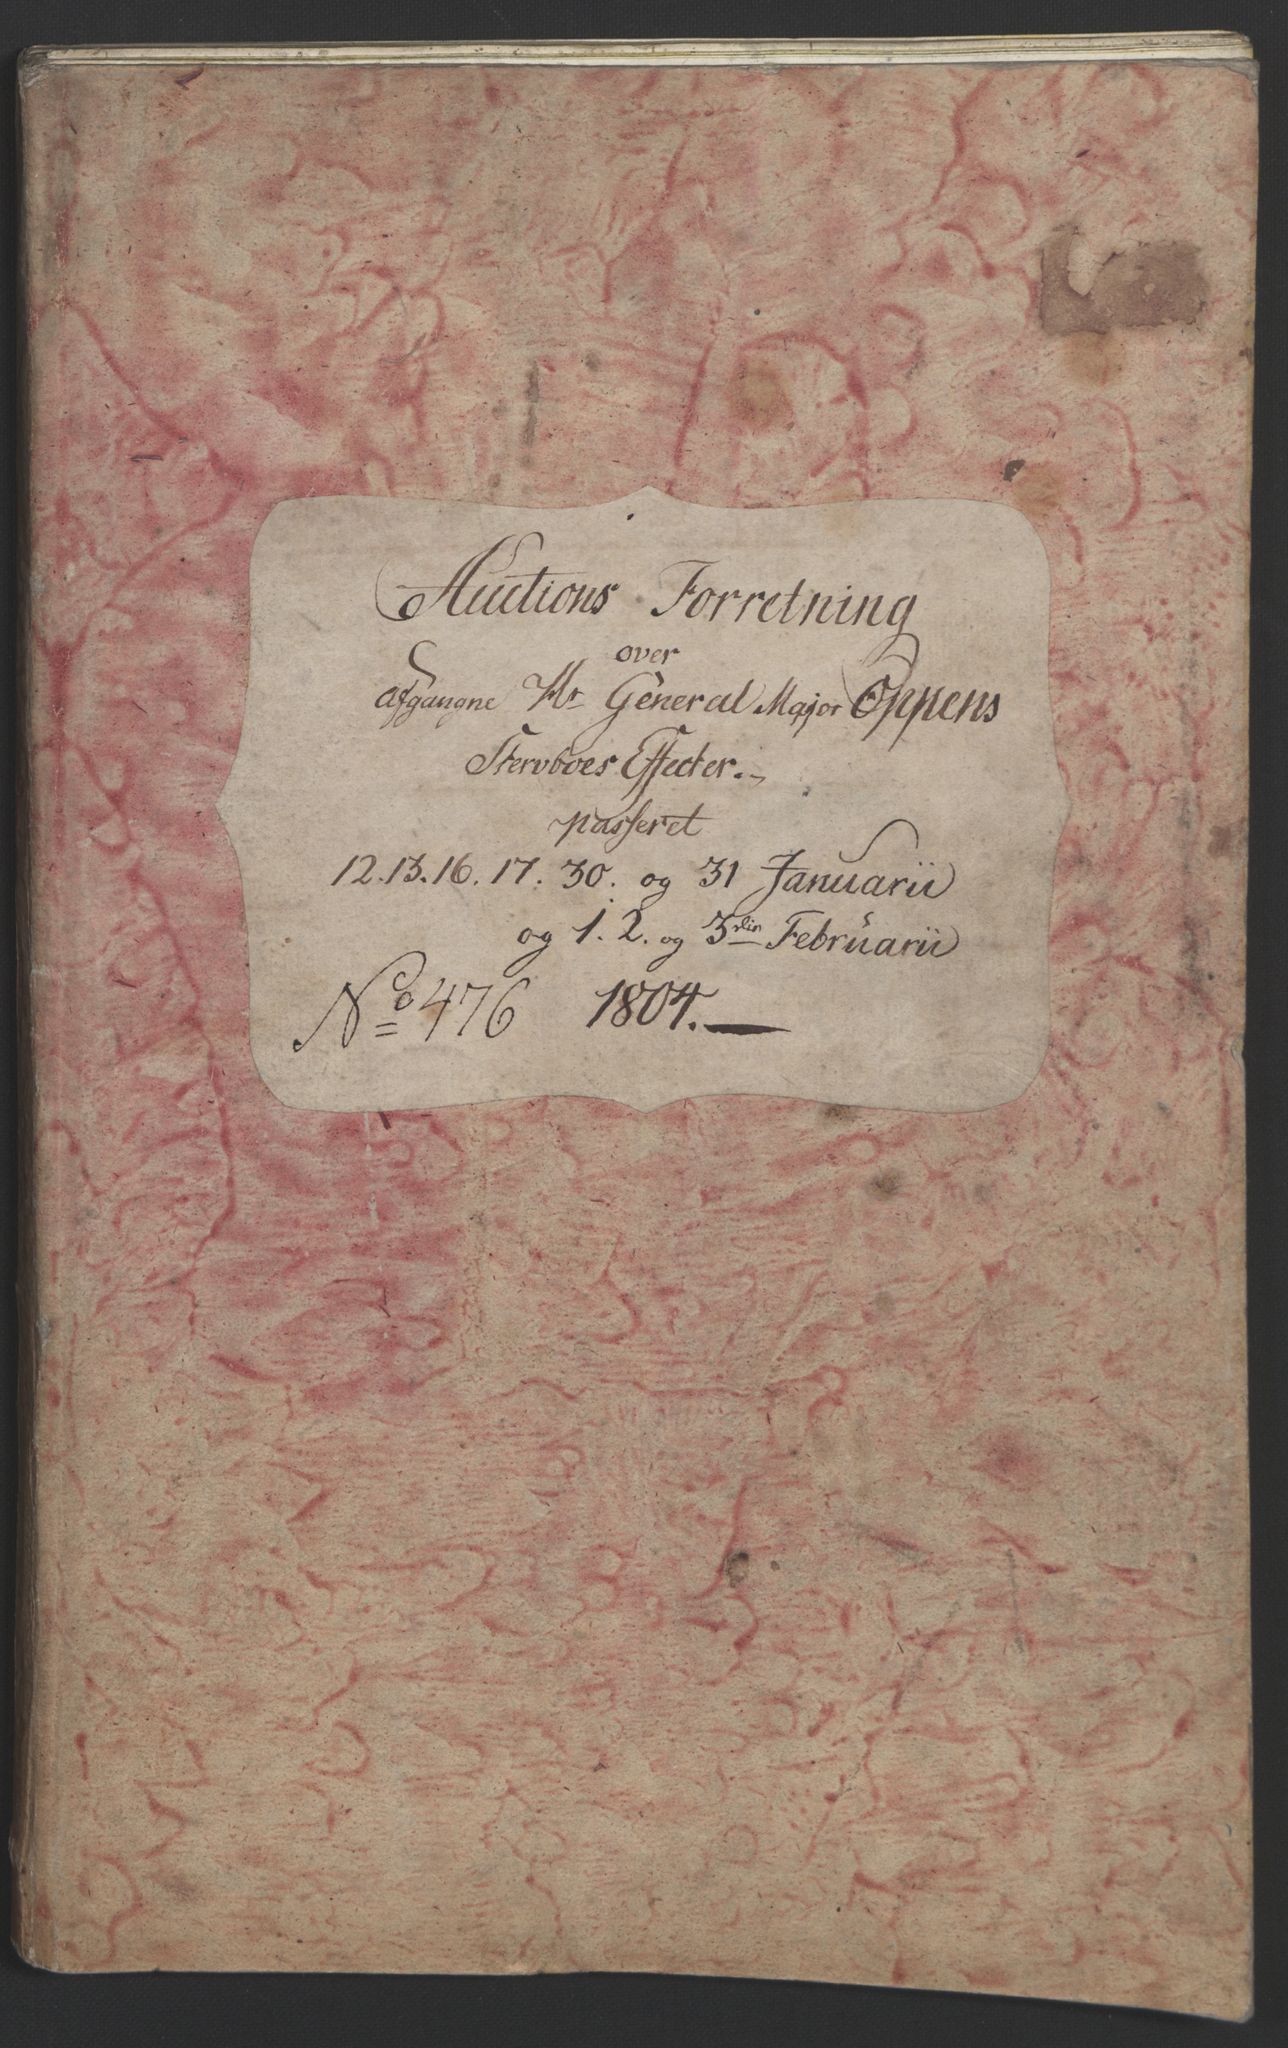 Auctions Forretning
over
afgangne Hr General Major Oppens
Stervboes Effecter.
passeret
12. 13. 16. 17. 30. og 31 Januarii
og 1. 2. og 3die Februarii
No 476 1804.